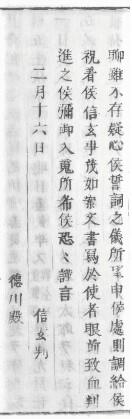 聊雖不存疑心侯誓詞之儀所望申侯處則調給侯
祝着侯信玄事茂如案文書寫於使者眼前致血判
進之侯彌御入魂所希侯恐々謹言
二月十六日
信玄判
德川殿